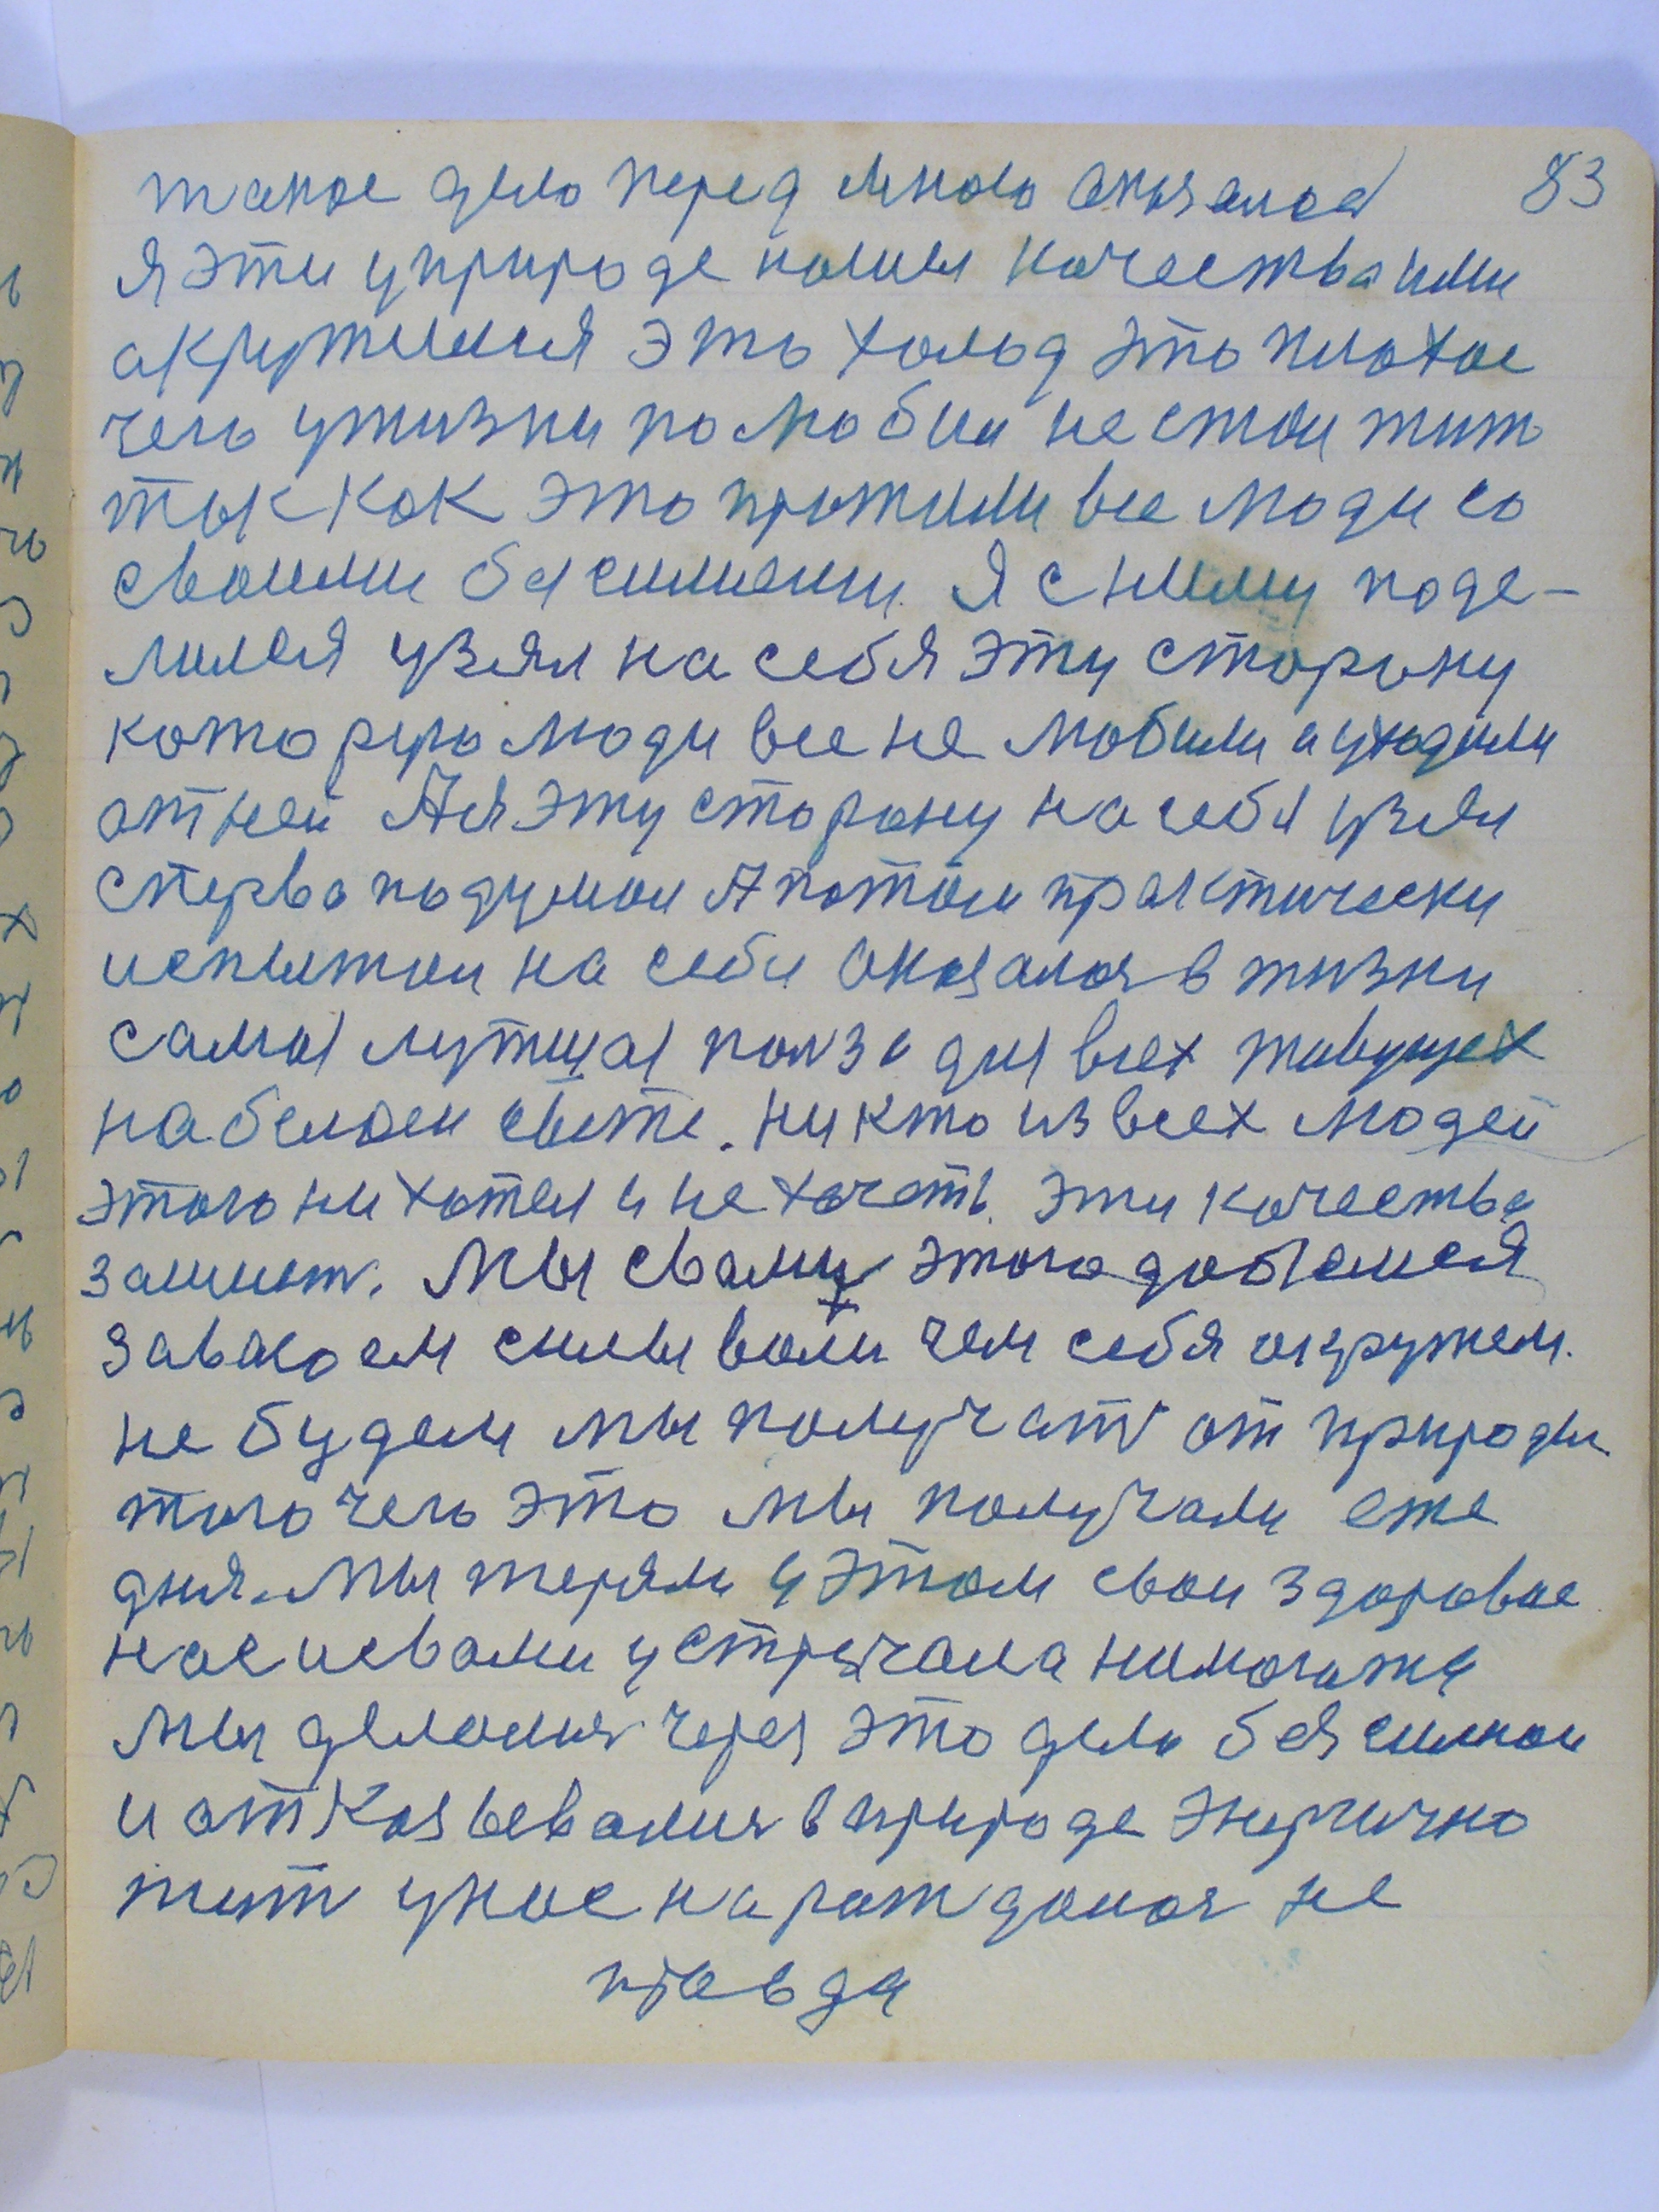 такое дело перед мною оказалос 83
я эти у природе нашел качества ими
акружилися это холод это плохое
чего у жизни по любви не стои жит
так как это прожили все люди со
своими басилиеми. Я с ниму поде-
лилея узял на себя эту сторону
которую люди все не любили и уходили
от ней А я эту сторону на себя узял
сперва подумал А потом практически
испытал на себе оказалос в жизни
самая лутшая полза для всех живущех
на белом свете. никто из всех людей
этого ни хотел и не хочеть. эти качества
займит. Мы с вами этого добъемся
заваюем силы воли чем себя окружем.
не будем мы получать от природы
того чего это мы получали еже
дня. мы теряли у этом свои здоровие
нас и с вами устречала нимогота
мы делалис через это дело безсилнои
и отказывалис в природе энергично
жит у нас нараждалос не
правда